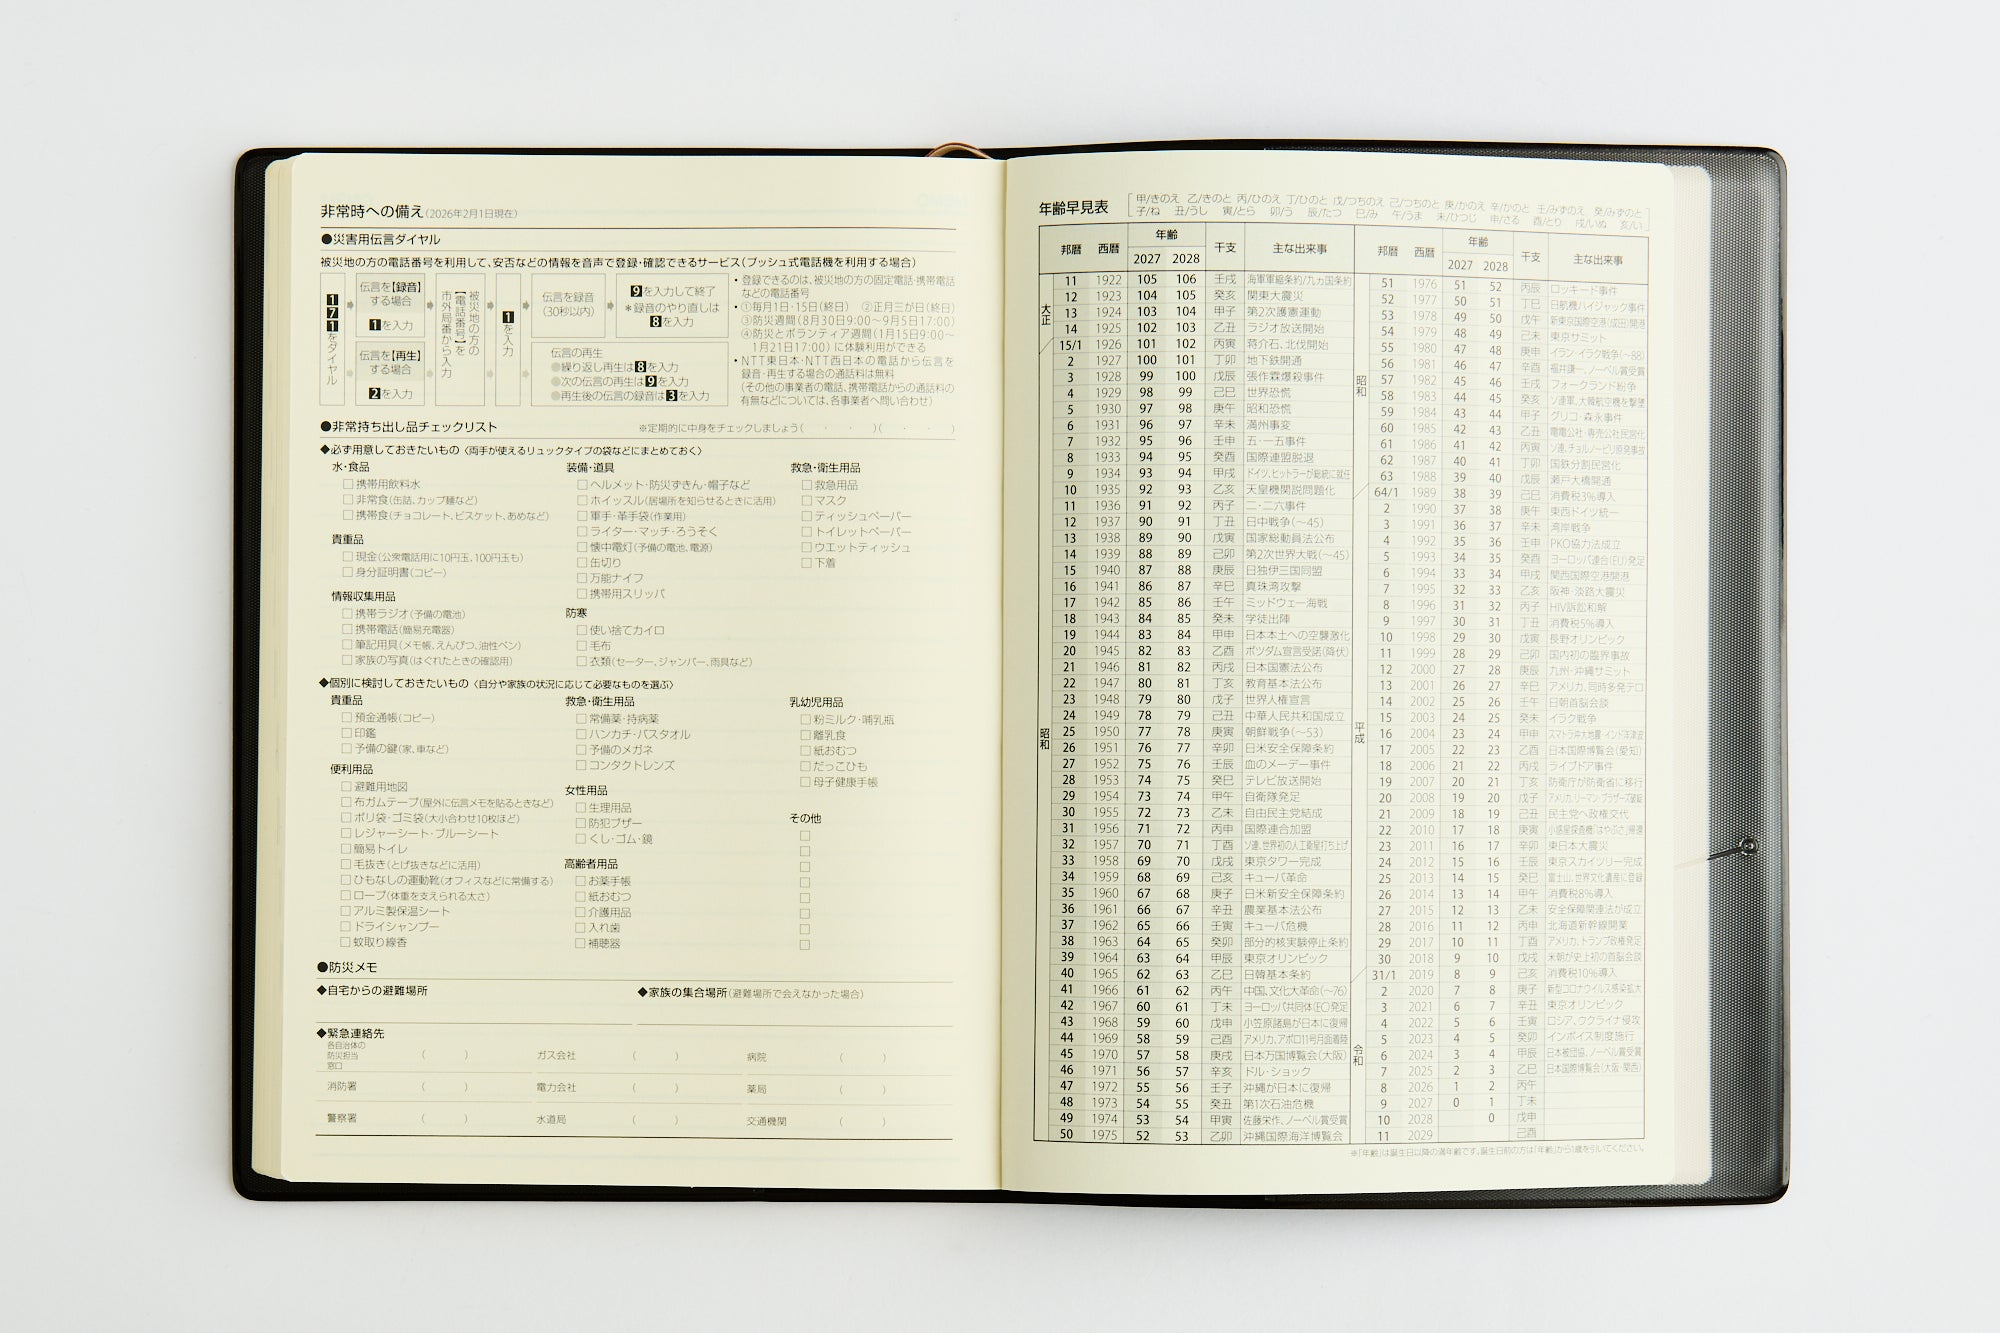 非常時への備え(2026年2月1日現在)
●災害用伝言ダイヤル
被災地の方の電話番号を利用して、安否などの情報を音声で登録・確認できるサービス(プッシュ式電話機を利用する場合)
171をダイヤル
伝言を【録音】する場合
1を入力
伝言を【再生】する場合
2を入力
被災地の方の【電話番号】を市外局番から入力
1を入力
伝言を録音
(30秒以内)
9を入力して終了
*録音のやり直しは
8を入力
伝言の再生
●繰り返し再生は8を入力
●次の伝言の再生は9を入力
●再生後の伝言の録音は3を入力
・登録できるのは、被災地の方の固定電話・携帯電話
などの電話番号
・①毎月1日・15日(終日) ②正月三が日(終日)
③防災週間(8月30日9:00〜9月5日17:00)
④防災とボランティア週間(1月15日9:00〜
1月21日17:00)に体験利用ができる
・NTT東日本・NTT西日本の電話から伝言を
録音・再生する場合の通話料は無料
(その他の事業者の電話、携帯電話からの通話料の
有無などについては、各事業者へ問い合わせ)
●非常持ち出し品チェックリスト ※定期的に中身をチェックしましょう( ・ ・ )( ・ ・ )
◆必ず用意しておきたいもの〈両手が使えるリュックタイプの袋などにまとめておく〉
水・食品
□携帯用飲料水
□非常食(缶詰、カップ麺など)
□携帯食(チョコレート、ビスケット、あめなど)
貴重品
□現金(公衆電話用に10円玉、100円玉も)
□身分証明書(コピー)
情報収集用品
□携帯ラジオ(予備の電池)
□携帯電話(簡易充電器)
□筆記用具(メモ帳、えんぴつ、油性ペン)
□家族の写真(はぐれたときの確認用)
装備・道具
□ヘルメット・防災ずきん・帽子など
□ホイッスル(居場所を知らせるときに活用)
□軍手・革手袋(作業用)
□ライター・マッチ・ろうそく
□懐中電灯(予備の電池、電源)
□缶切り
□万能ナイフ
□携帯用スリッパ
防寒
□使い捨てカイロ
□毛布
□衣類(セーター、ジャンパー、雨具など)
救急・衛生用品
□救急用品
□マスク
□ティッシュペーパー
□トイレットペーパー
□ウエットティッシュ
□下着
◆個別に検討しておきたいもの〈自分や家族の状況に応じて必要なものを選ぶ〉
貴重品
□預金通帳(コピー)
□印鑑
□予備の鍵(家、車など)
便利用品
□避難用地図
□布ガムテープ(屋外に伝言メモを貼るときなど)
□ポリ袋・ゴミ袋(大小合わせ10枚ほど)
□レジャーシート・ブルーシート
□簡易トイレ
□毛抜き(とげ抜きなどに活用)
□ひもなしの運動靴(オフィスなどに常備する)
□ロープ(体重を支えられる太さ)
□アルミ製保温シート
□ドライシャンプー
□蚊取り線香
救急・衛生用品
□常備薬・持病薬
□ハンカチ・バスタオル
□予備のメガネ
□コンタクトレンズ
女性用品
□生理用品
□防犯ブザー
□くし・ゴム・鏡
高齢者用品
□お薬手帳
□紙おむつ
□介護用品
□入れ歯
□補聴器
乳幼児用品
□粉ミルク・哺乳瓶
□離乳食
□紙おむつ
□だっこひも
□母子健康手帳
その他
□
□
□
□
□
□
□
□
●防災メモ
◆自宅からの避難場所 ◆家族の集合場所(避難場所で会えなかった場合)
◆緊急連絡先
各自治体の
防災担当
窓口 ( ) ガス会社 ( ) 病院 ( )
消防署 ( ) 電力会社 ( ) 薬局 ( )
警察署 ( ) 水道局 ( ) 交通機関 ( )
年齢早見表
甲/きのえ 乙/きのと 丙/ひのえ 丁/ひのと 戊/つちのえ 己/つちのと 庚/かのえ 辛/かのと 壬/みずのえ 癸/みずのと
子/ね 丑/うし 寅/とら 卯/う 辰/たつ 巳/み 午/うま 未/ひつじ 申/さる 酉/とり 戌/いぬ 亥/い
邦暦 西暦 年齢 2027 2028 干支 主な出来事
大正
11 1922 105 106 壬戌 海軍軍縮条約/九カ国条約
12 1923 104 105 癸亥 関東大震災
13 1924 103 104 甲子 第2次護憲運動
14 1925 102 103 乙丑 ラジオ放送開始
15/1 1926 101 102 丙寅 蒋介石、北伐開始
昭和
2 1927 100 101 丁卯 地下鉄開通
3 1928 99 100 戊辰 張作霖爆殺事件
4 1929 98 99 己巳 世界恐慌
5 1930 97 98 庚午 昭和恐慌
6 1931 96 97 辛未 満州事変
7 1932 95 96 壬申 五・一五事件
8 1933 94 95 癸酉 国際連盟脱退
9 1934 93 94 甲戌 ドイツ、ヒットラーが総統に就任
10 1935 92 93 乙亥 天皇機関説問題化
11 1936 91 92 丙子 二・二六事件
12 1937 90 91 丁丑 日中戦争(〜45)
13 1938 89 90 戊寅 国家総動員法公布
14 1939 88 89 己卯 第2次世界大戦(〜45)
15 1940 87 88 庚辰 日独伊三国同盟
16 1941 86 87 辛巳 真珠湾攻撃
17 1942 85 86 壬午 ミッドウェー海戦
18 1943 84 85 癸未 学徒出陣
19 1944 83 84 甲申 日本本土への空襲激化
20 1945 82 83 乙酉 ポツダム宣言受諾(降伏)
21 1946 81 82 丙戌 日本国憲法公布
22 1947 80 81 丁亥 教育基本法公布
23 1948 79 80 戊子 世界人権宣言
24 1949 78 79 己丑 中華人民共和国成立
25 1950 77 78 庚寅 朝鮮戦争(〜53)
26 1951 76 77 辛卯 日米安全保障条約
27 1952 75 76 壬辰 血のメーデー事件
28 1953 74 75 癸巳 テレビ放送開始
29 1954 73 74 甲午 自衛隊発足
30 1955 72 73 乙未 自由民主党結成
31 1956 71 72 丙申 国際連合加盟
32 1957 70 71 丁酉 ソ連、世界初の人工衛星打ち上げ
33 1958 69 70 戊戌 東京タワー完成
34 1959 68 69 己亥 キューバ革命
35 1960 67 68 庚子 日米新安全保障条約
36 1961 66 67 辛丑 農業基本法公布
37 1962 65 66 壬寅 キューバ危機
38 1963 64 65 癸卯 部分的核実験停止条約
39 1964 63 64 甲辰 東京オリンピック
40 1965 62 63 乙巳 日韓基本条約
41 1966 61 62 丙午 中国、文化大革命(〜76)
42 1967 60 61 丁未 ヨーロッパ共同体(EC)発足
43 1968 59 60 戊申 小笠原諸島が日本に復帰
44 1969 58 59 己酉 アメリカ、アポロ11号月面着陸
45 1970 57 58 庚戌 日本万国博覧会(大阪)
46 1971 56 57 辛亥 ドル・ショック
47 1972 55 56 壬子 沖縄が日本に復帰
48 1973 54 55 癸丑 第1次石油危機
49 1974 53 54 甲寅 佐藤栄作、ノーベル賞受賞
50 1975 52 53 乙卯 沖縄国際海洋博覧会
邦暦 西暦 年齢 2027 2028 干支 主な出来事
昭和
51 1976 51 52 丙辰 ロッキード事件
52 1977 50 51 丁巳 日航機ハイジャック事件
53 1978 49 50 戊午 新東京国際空港(成田)開港
54 1979 48 49 己未 東京サミット
55 1980 47 48 庚申 イラン・イラク戦争(〜88)
56 1981 46 47 辛酉 福井謙一、ノーベル賞受賞
57 1982 45 46 壬戌 フォークランド紛争
58 1983 44 45 癸亥 ソ連軍、大韓航空機を撃墜
59 1984 43 44 甲子 グリコ・森永事件
60 1985 42 43 乙丑 電電公社・専売公社民営化
61 1986 41 42 丙寅 ソ連、チョルノービリ原発事故
62 1987 40 41 丁卯 国鉄分割民営化
63 1988 39 40 戊辰 瀬戸大橋開通
64/1 1989 38 39 己巳 消費税3%導入
平成
2 1990 37 38 庚午 東西ドイツ統一
3 1991 36 37 辛未 湾岸戦争
4 1992 35 36 壬申 PKO協力法成立
5 1993 34 35 癸酉 ヨーロッパ連合(EU)発足
6 1994 33 34 甲戌 関西国際空港開港
7 1995 32 33 乙亥 阪神・淡路大震災
8 1996 31 32 丙子 HIV訴訟和解
9 1997 30 31 丁丑 消費税5%導入
10 1998 29 30 戊寅 長野オリンピック
11 1999 28 29 己卯 国内初の臨界事故
12 2000 27 28 庚辰 九州・沖縄サミット
13 2001 26 27 辛巳 アメリカ、同時多発テロ
14 2002 25 26 壬午 日朝首脳会談
15 2003 24 25 癸未 イラク戦争
16 2004 23 24 甲申 スマトラ沖大地震・インド洋津波
17 2005 22 23 乙酉 日本国際博覧会(愛知)
18 2006 21 22 丙戌 ライブドア事件
19 2007 20 21 丁亥 防衛庁が防衛省に移行
20 2008 19 20 戊子 アメリカ、リーマン・ブラザーズ破綻
21 2009 18 19 己丑 民主党へ政権交代
22 2010 17 18 庚寅 小惑星探査機「はやぶさ」帰還
23 2011 16 17 辛卯 東日本大震災
24 2012 15 16 壬辰 東京スカイツリー完成
25 2013 14 15 癸巳 富士山、世界文化遺産に登録
26 2014 13 14 甲午 消費税8%導入
27 2015 12 13 乙未 安全保障関連法が成立
28 2016 11 12 丙申 北海道新幹線開業
29 2017 10 11 丁酉 アメリカ、トランプ政権発足
30 2018 9 10 戊戌 米朝が史上初の首脳会談
31/1 2019 8 9 己亥 消費税10%導入
令和
2 2020 7 8 庚子 新型コロナウイルス感染拡大
3 2021 6 7 辛丑 東京オリンピック
4 2022 5 6 壬寅 ロシア、ウクライナ侵攻
5 2023 4 5 癸卯 インボイス制度施行
6 2024 3 4 甲辰 日本被団協、ノーベル賞受賞
7 2025 2 3 乙巳 日本国際博覧会(大阪・関西)
8 2026 1 2 丙午
9 2027 0 1 丁未
10 2028 0 戊申
11 2029 己酉
※「年齢」は誕生日以降の満年齢です。誕生日前の方は「年齢」から1歳を引いてください。